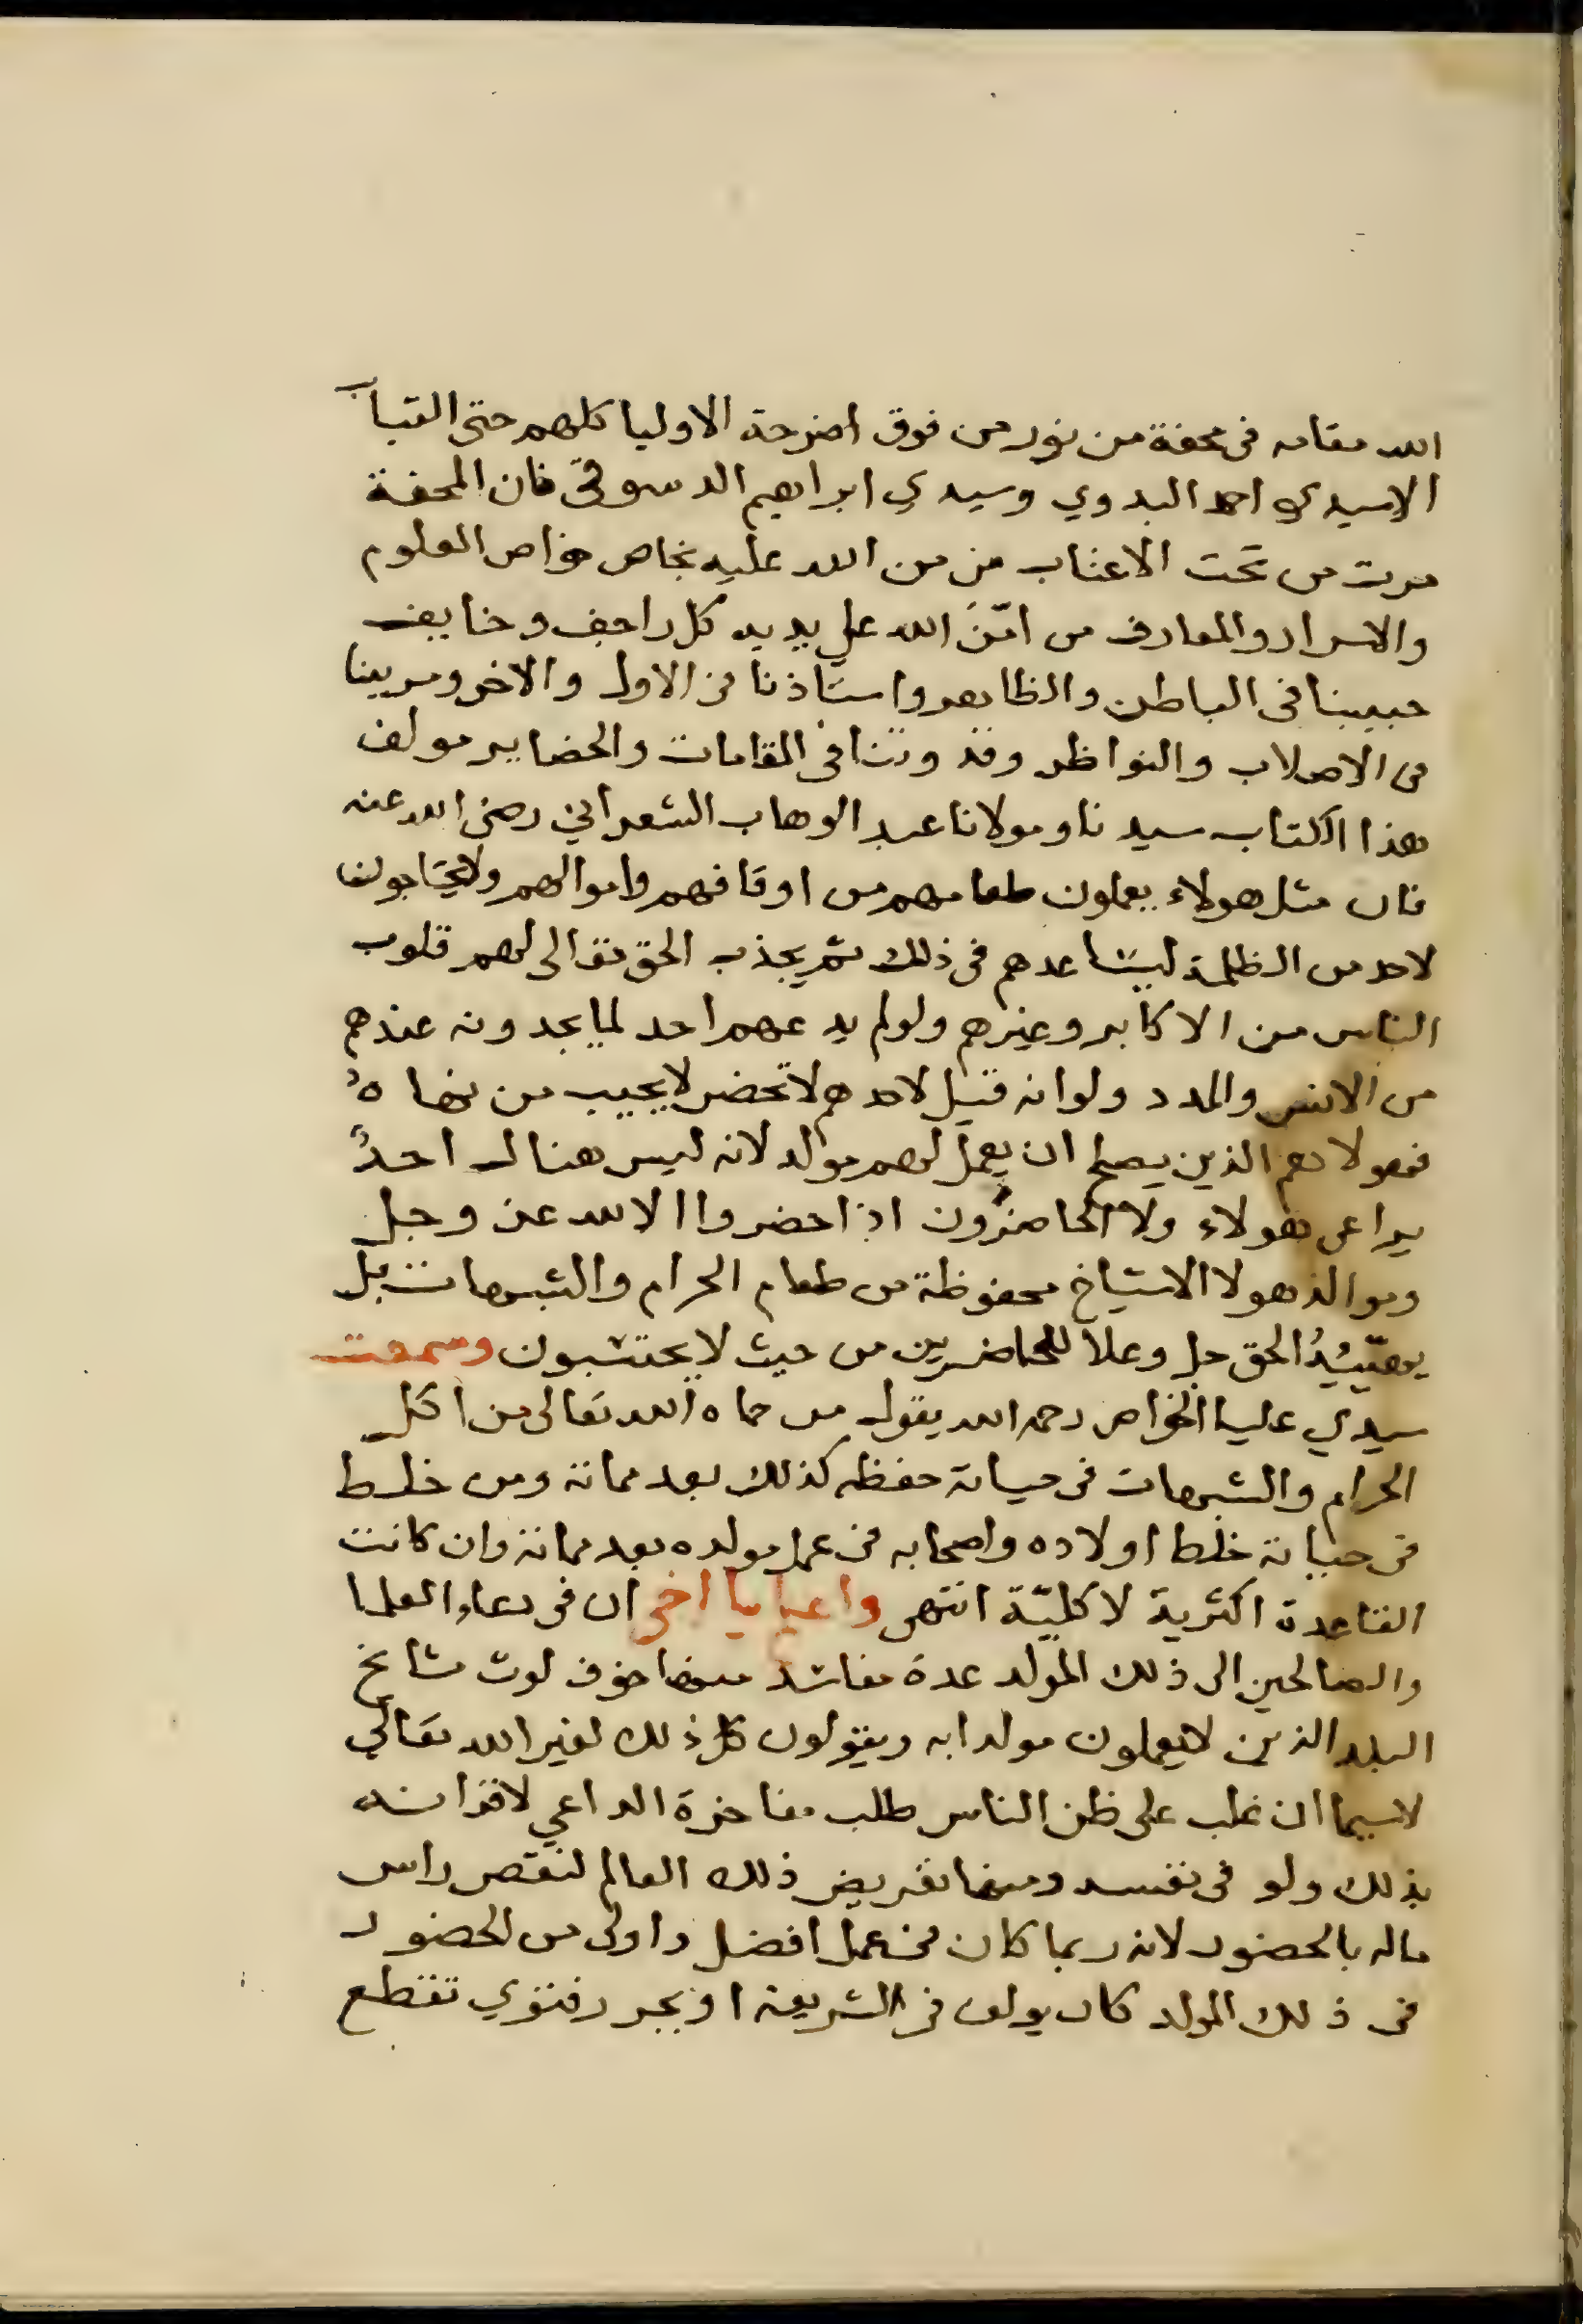 الله مقامه فى محفة من نور من فوق اضرحة الاوليا كلهم حتى القباب
الاسيدي احمد البدوي وسيدي ابراهيم الدسوقى فان المحفة
مرت من تحت الاعتاب من من الله عليه بخاص خواص العلوم
والاسرار والمعارف من امّنَ الله على يديه كل راجف وخايف
حبيبنا فى الباطن والظاهر واستاذنا فى الاول والاخر ومربينا
فى الاصلاب والنواظر وقدوتنا فى المقامات والحضاير مولف
هذا الكتاب سيدنا ومولانا عبد الوهاب الشعرانى رضى الله عنه
فان مثل هولاء يعملون طعامهم من اوقافهم واموالهم ولا يحتاجون
لاحد من الظلمة ليساعدهم فى ذلك ثم يجذب الحق تعالى لهم قلوب
الناس من الاكابر وغيرهم ولو لم يدعهم احد لما يجدونه عندهم
من الانس والمدد ولو انه قيل لاحدهم لا تحضر لا يجيب من نهاهُ
فهولا هم الذين يصلح ان يعمل لهم مولد لانه ليس هناك احدٌ
يراعى هولاء ولا الحاضرون اذا حضروا الا الله عز وجل
وموالد هولا الاشياخ محفوظة من طعام الحرام والشبهات بل
يهيّيُهُ الحق جل وعلا للحاضرين من حيث لا يحتسبون وسمعت
سيدي عليا الخواص رحمه الله يقول من حماه الله تعالى من اكل
الحرام والشبهات فى حياته حفظه كذلك بعد مماته ومن خلط
فى حياته خلط اولاده واصحابه فى عمل مولده بعد مماته وان كانت
القاعدة اكثرية لا كليّة انتهى واعلم يا اخى ان فى دعاء العلما
والصالحين الى ذلك المولد عدة مفاسد منها خوف لوث مشايخ
البلد الذين لا يعملون مولدا به ويقولون كل ذلك لغير الله تعالى
لاسيما ان غلب على ظن الناس طلب مفاخرة الداعي لاقرانه
بذلك ولو فى نفسه ومنها تعريض ذلك العالم لنقص راس
ماله بالحضور لانه ربما كان فى عمل افضل واولى من الحضور
فى ذلك المولد كان يولف فى الشريعة او يحرر فتوي تقطع